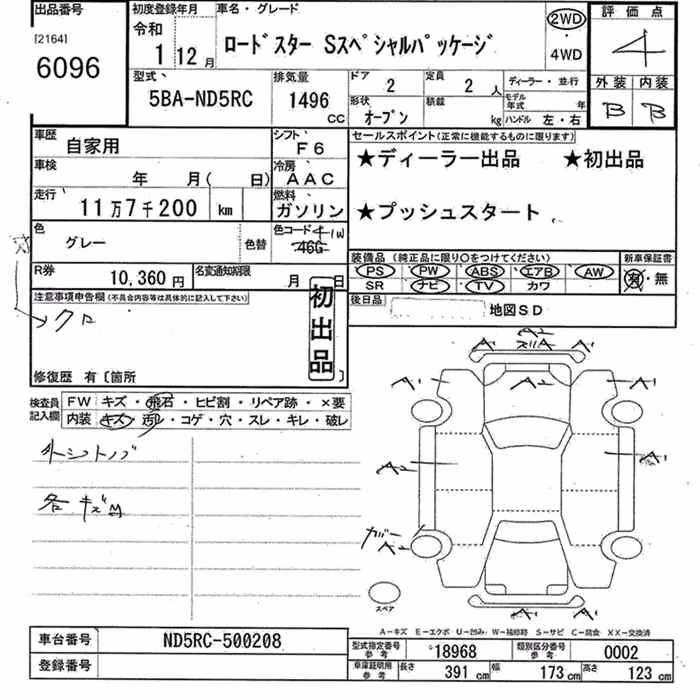 出品番号 初度登録年月 車名・グレード 評価点
[2164] 令和 2WD
6096 1 12月 ロードスター Sスペシャルパッケージ ・ 4
4WD
型式 排気量 ドア 2 定員 2人 ディーラー・並行 外装 内装
5BA-ND5RC 1496 CC 形状 オープン 積載 kg モデル年式 年 B B
ハンドル 左・右
車歴 自家用 シフト F6 セールスポイント(正常に機能するものに限ります)
車検 年 月( 日) 冷房 AAC ★ディーラー出品 ★初出品
走行 11万7千200 km 燃料 ガソリン ★プッシュスタート
色 グレー 色替 色コード 41W
46G
装備品(純正品に限り○をつけてください) 新車保証書
R券 10,360円 名変通知期限 月 日 PS PW ABS エアB AW 有・無
SR ナビ TV カワ
注意事項申告欄(不具合内容等は具体的に記入して下さい) 初出品 後日品 地図SD
→クロ
修復歴 有〔箇所
検査員記入欄 FW キズ・飛石・ヒビ割・リペア跡・×要
内装 キズ・汚レ・コゲ・穴・スレ・キレ・破レ
各キズ
A2
A1 A1
A1 A2 A1
A2 A1
A2
スペア
A-キズ E-エクボ U-凹み W-補修跡 S-サビ C-腐食 XX-交換済
車台番号 ND5RC-500208 型式指定番号 参考 18968 類別区分番号 参考 0002
登録番号 車庫証明用 参考 長さ 391 cm 幅 173 cm 高さ 123 cm